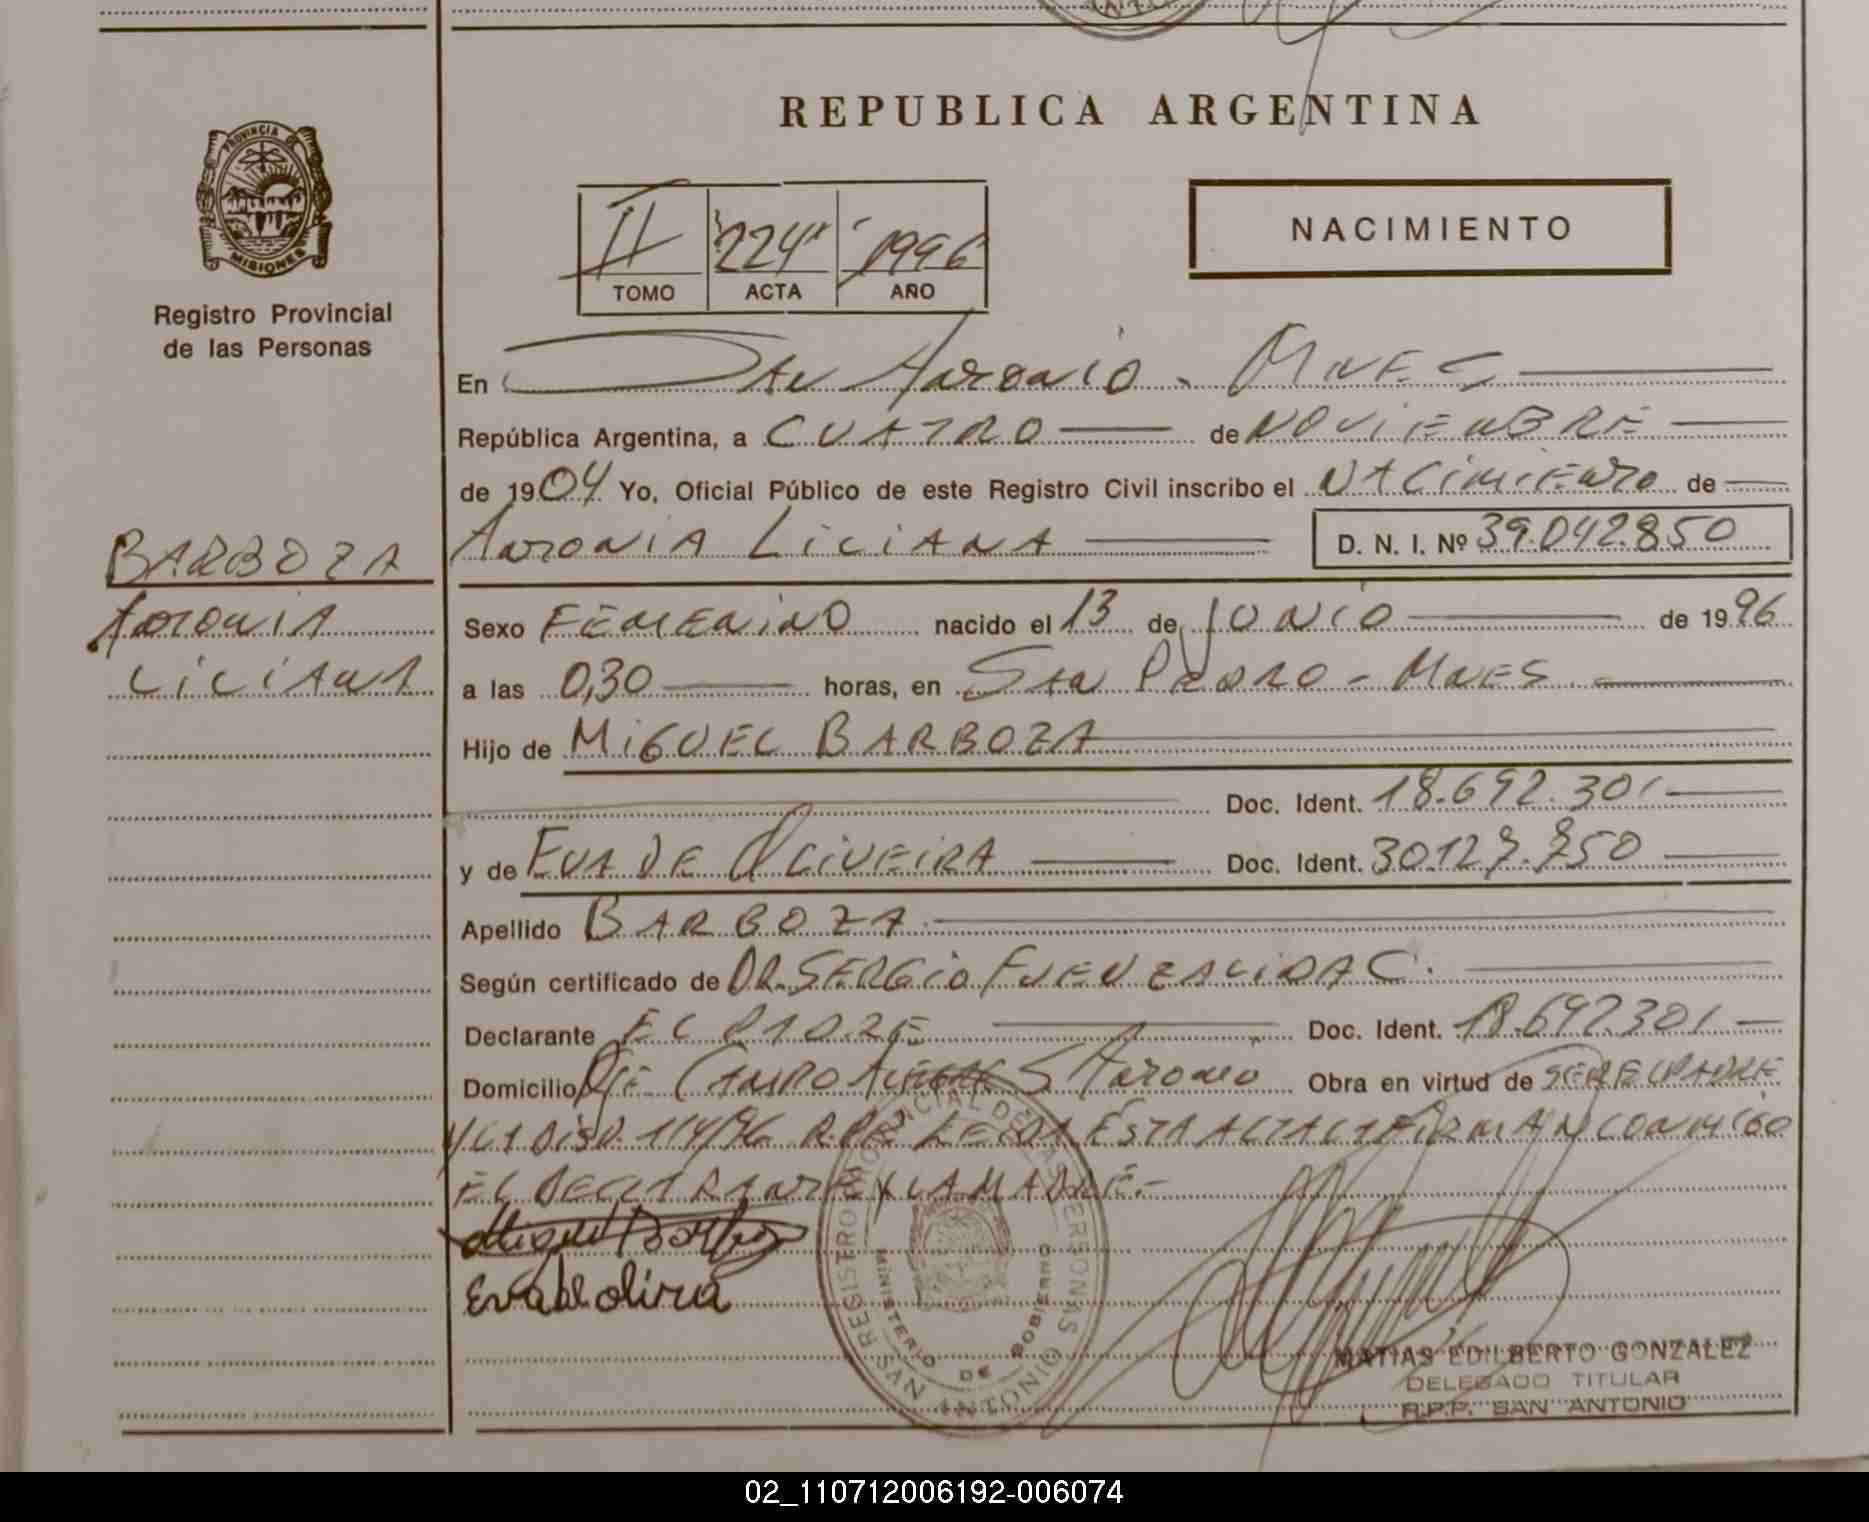 REPUBLICA ARGENTINA
PROVINCIA DE MISIONES
Registro Provincial
de las Personas
II 224 1996
TOMO ACTA AÑO
NACIMIENTO
En San Antonio - Mnes
República Argentina, a CUATRO de NOVIEMBRE
de 1904 Yo, Oficial Público de este Registro Civil inscribo el NACIMIENTO de
ANTONIA LILIANA D. N. I. Nº 39.042.850
BARBOZA
ANTONIA
LILIANA
Sexo FEMENINO nacido el 13 de JUNIO de 1996
a las 0,30 horas, en SAN PEDRO - MNES
Hijo de MIGUEL BARBOZA
Doc. Ident. 18.692.301
y de EVA DE OLIVEIRA Doc. Ident. 30.127.850
Apellido BARBOZA
Según certificado de DR. SERGIO FUENZALIDA C.
Declarante EL PADRE Doc. Ident. 18.692301
Domicilio S Antonio Obra en virtud de SER EL PADRE
Y LA DISP. 114/96 R.P.P. LEIDA ESTA ACTA LA FIRMAN CONMIGO
EL DECLARANTE Y LA MADRE.-
Miguel Barboza
Eva de olivra
REGISTRO PROVINCIAL DE LAS PERSONAS
MINISTERIO DE GOBIERNO
SAN ANTONIO
MATIAS EDILBERTO GONZALEZ
DELEGADO TITULAR
R.P.P. SAN ANTONIO
02_110712006192-006074